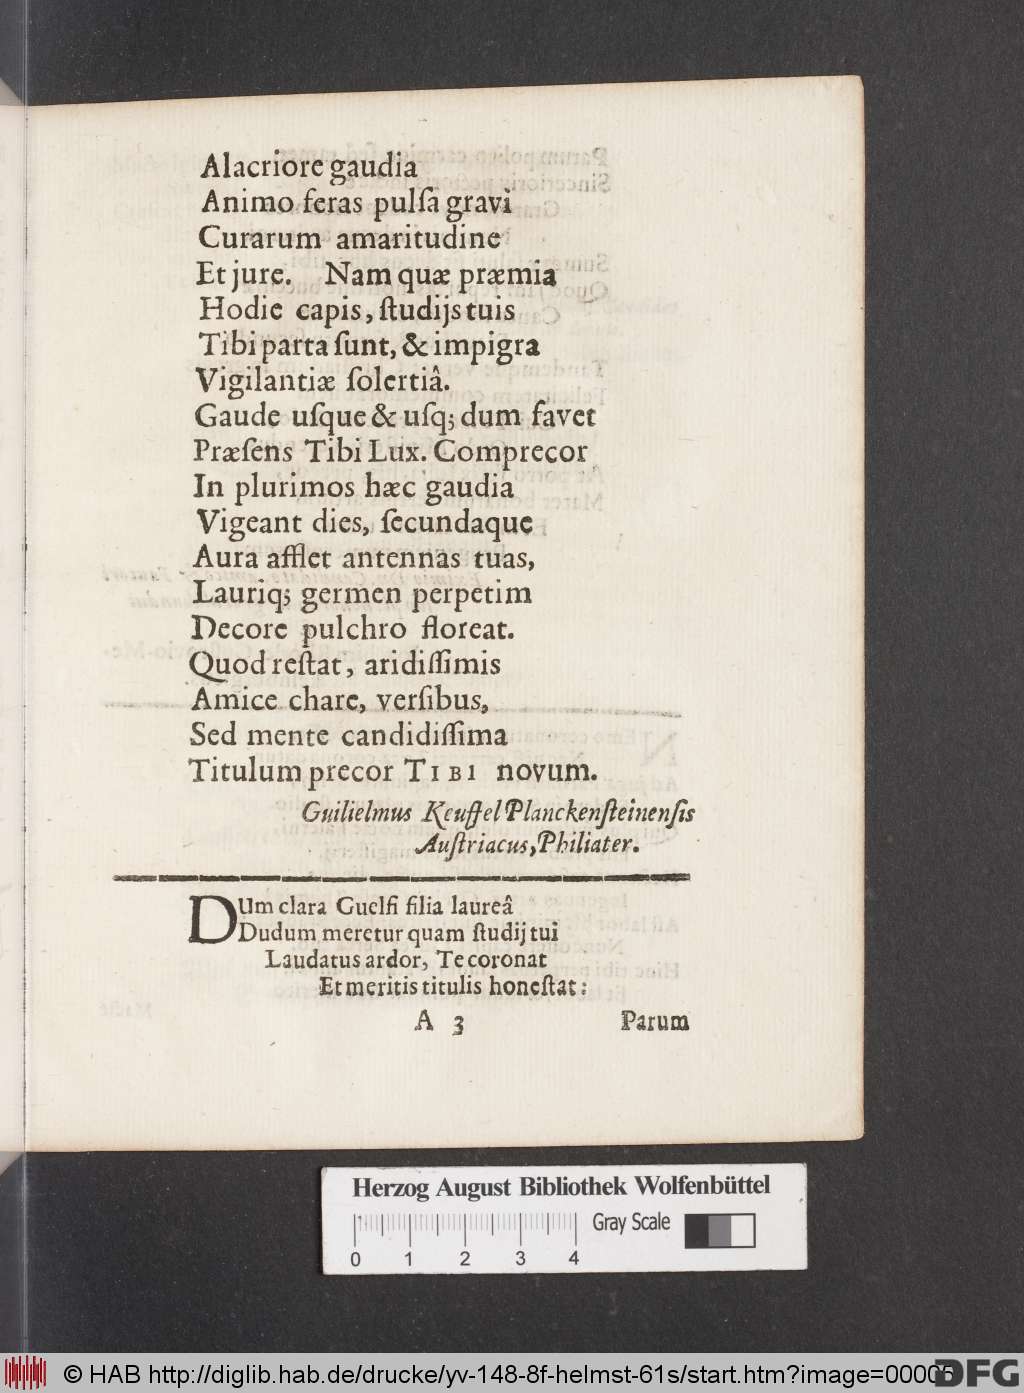 Alacriore gaudia
Animo feras pulſa gravi
Curarum amaritudine
Et jure. Nam quæ præmia
Hodie capis, ſtudijs tuis
Tibi parta ſunt, & impigra
Vigilantiæ ſolertiâ.
Gaude uſque & uſq; dum favet
Præſens Tibi Lux. Comprecor
In plurimos hæc gaudia
Vigeant dies, ſecundaque
Aura afflet antennas tuas,
Lauriq; germen perpetim
Decore pulchro floreat.
Quod reſtat, aridiſſimis
Amice chare, verſibus,
Sed mente candidiſſima
Titulum precor TIBI novum.
Guilielmus Keuffel Planckenſteinenſis
Auſtriacus, Philiater.
DUm clara Guelfi filia laureâ
Dudum meretur quam ſtudij tui
Laudatus ardor, Te coronat
Et meritis titulis honeſtat:
A 3 Parum
Herzog August Bibliothek Wolfenbüttel
Gray Scale
0 1 2 3 4
© HAB http://diglib.hab.de/drucke/yv-148-8f-helmst-61s/start.htm?image=00005
DFG